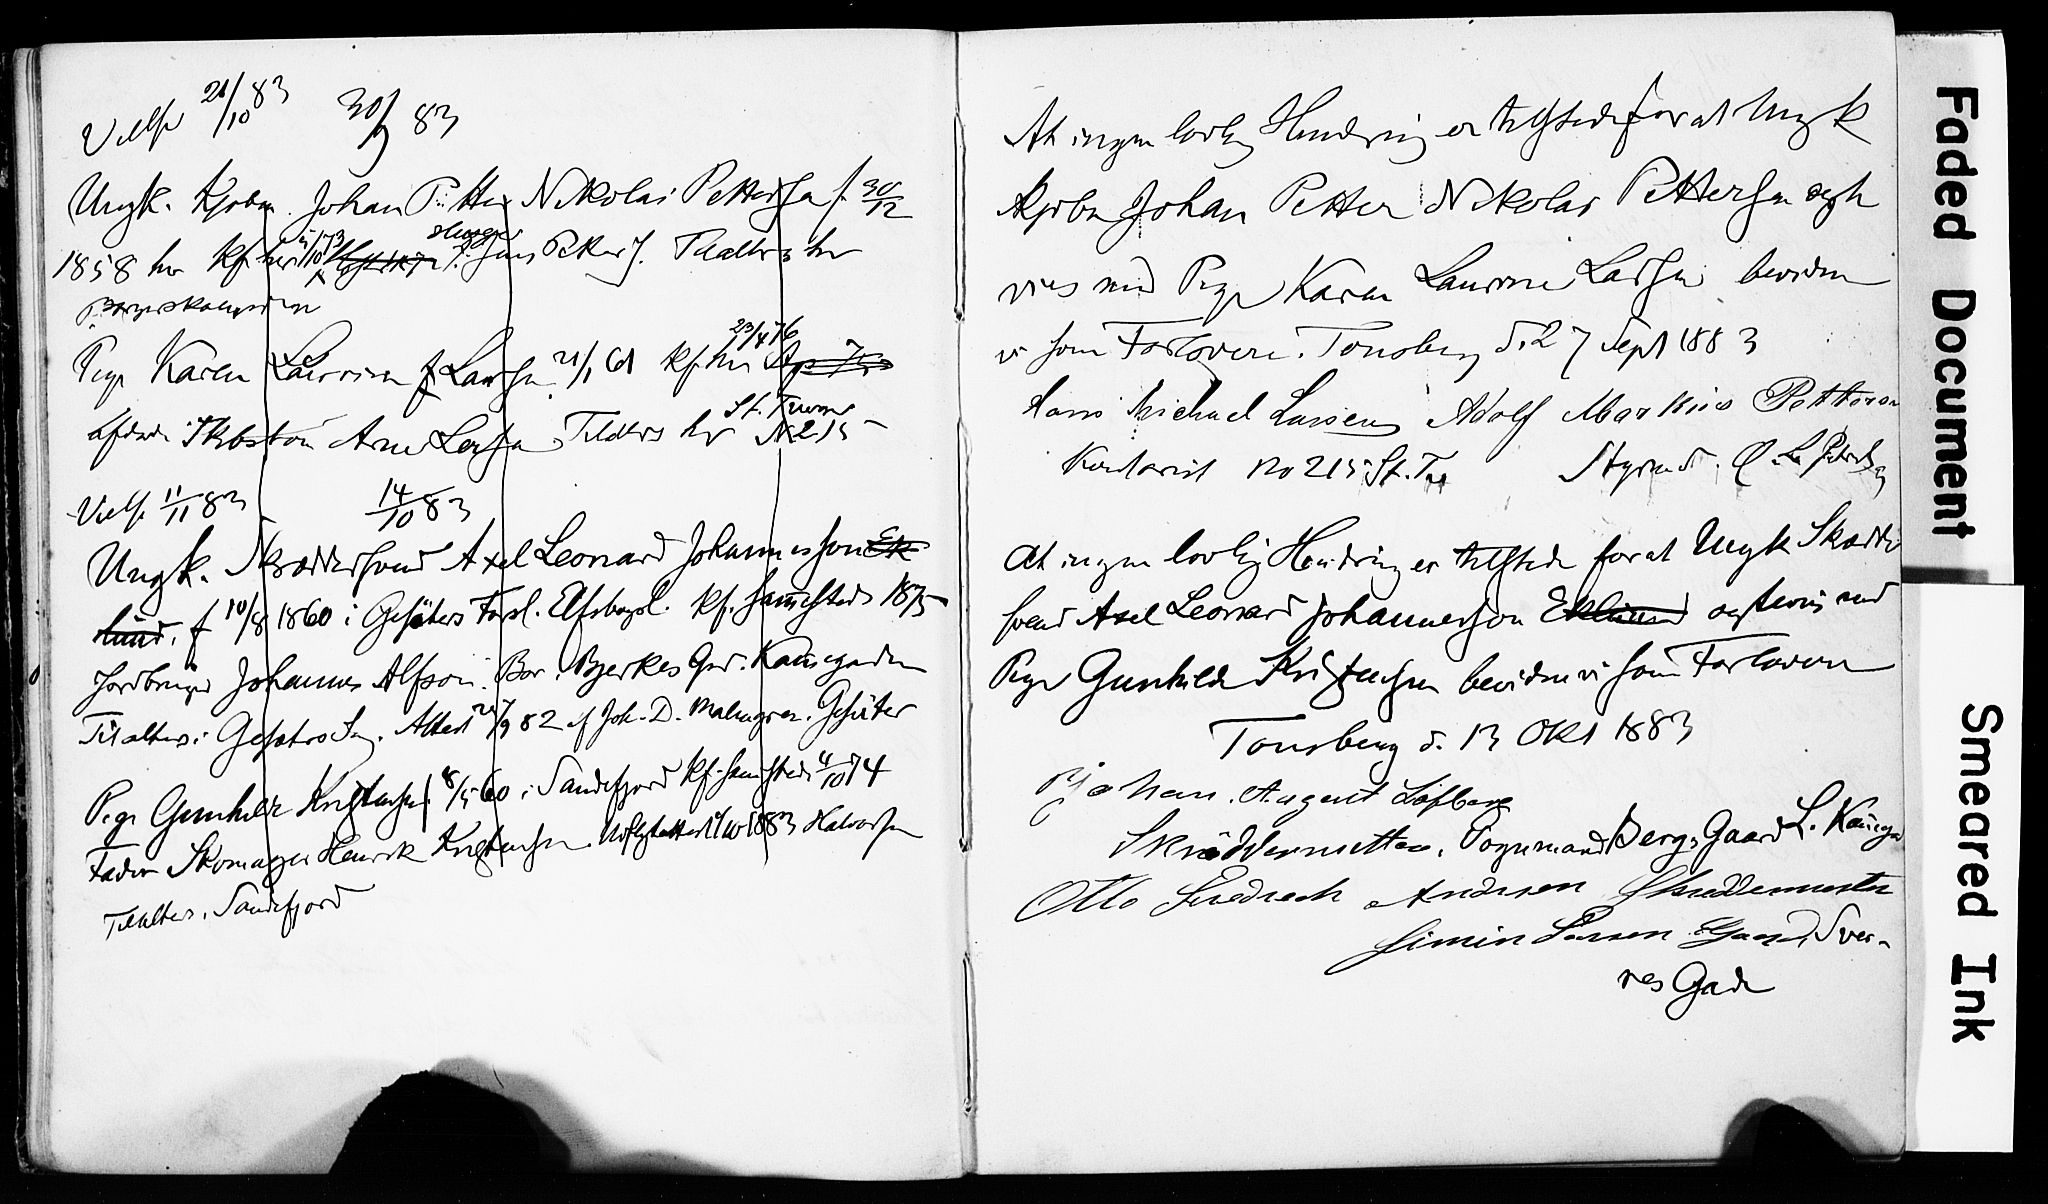 Vielse 21/10 83 30/9 83
Ungk. Kjøbm. Johan Petter Nikolai Pettersen f. 30/12
1858 her kf. her 5/10 73 F. Jens Petters. Tilalters her
Pige Karen Laurine Larsen 21/1 61 kf. her 23/4 76
afdøde Arne Larsen Tilalters her St. Treenes No 215
Vielse 11/11 83 14/10 83
Ungk. Skræddersvend Axel Leonard Johannesson Ek-
lund. f 10/8 1860 i Gesäters Forsl. Elfsborgsl. kf. sammesteds 1875
Jordbruger Johannes Alfson. Bor i Bjerkes Grd. Kamegaden
Tilalters i Gesäters Attest 27/9 82 af Joh. D. Malmgren. Gesäter
Pige Gunhilde Kristensen f. 8/5 60 i Sandefjord kf. sammesteds 4/10 74
Fader Skomager Henrik Kristensen. 1883 Halvorsen
Tilalters i Sandefjord
At ingen lovlig Hindring er tilstede for at Ungk
Kjøbm Johan Petter Nikolai Pettersen ægte
vies med Pige Karen Laurine Larsen bevidne
vi som Forlovere. Tønsberg d. 27 Sept 1883
Hans Michael Larsen Adolf Markus Petterson
Kontorist No 215 St. Tr Styrmd.
At ingen lovlig Hindring er tilstede for at Ungk Skrædder
svend Axel Leonard Johannesson Eklund ægtevies med
Pige Gunhilde Kristensen bevidne vi som Forlovere
Tønsberg d. 13 Okt 1883
Johan August Löfberg
Skräddermester. Bergs Gaard L. Kamegd
Otto Fredrech Andersen Skreddermester
Simen Larsen Gaard, Sver-
res Gade
Faded Document
Smeared Ink